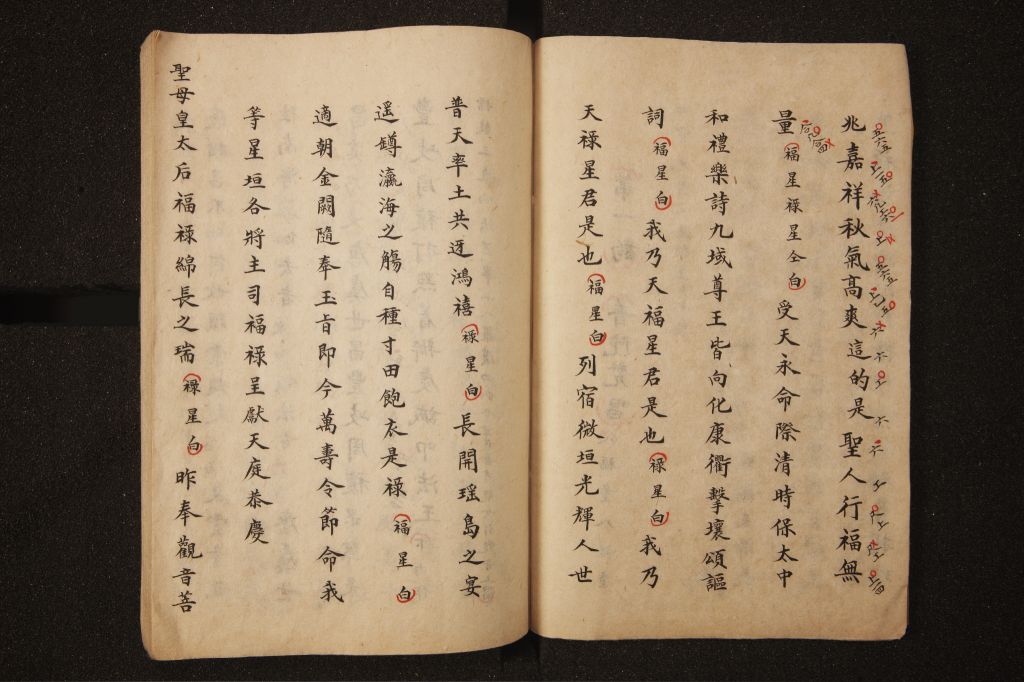 兆嘉祥秋氣高爽這的是聖人行福無
量福星祿星仝白受天永命際清時保太中
和禮樂詩九域尊王皆向化康衢擊壤頌謳
詞福星白我乃天福星君是也祿星白我乃
天祿星君是也福星白列宿微垣光輝人世
普天率土共迓鴻禧祿星白長開瑶島之宴
遥罇瀛海之觴自種寸田飽衣是祿福星白
適朝金闕隨奉玉旨即今萬壽令節命我
等星垣各將主司福祿呈獻天庭恭慶
聖母皇太后福祿綿長之瑞祿星白昨奉觀音菩